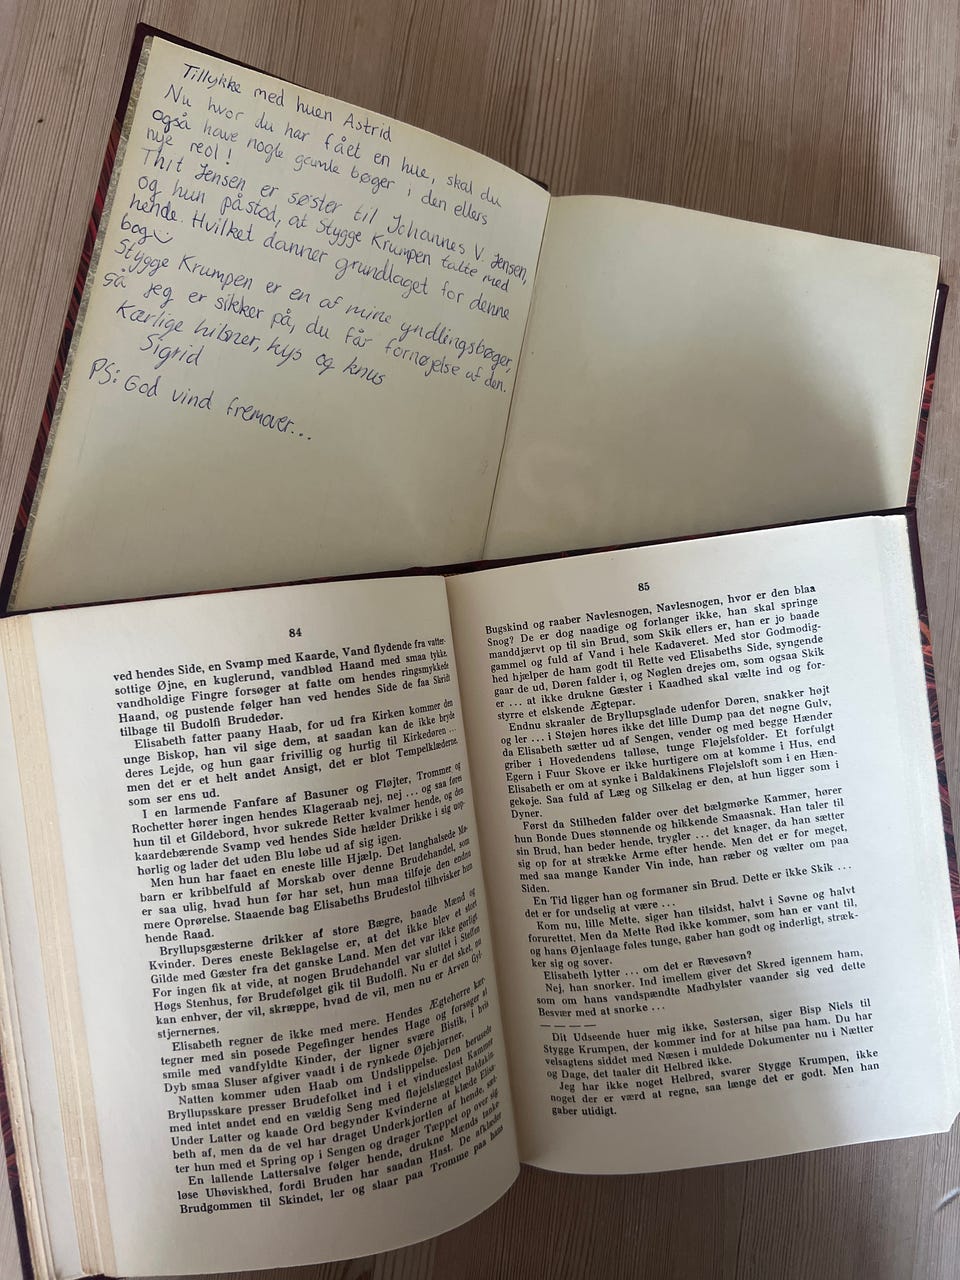 Tillykke med huen Astrid
Nu hvor du har fået en hue, skal du
også have nogle gamle bøger i den ellers
nye reol!
Thit Jensen er søster til Johannes V. Jensen,
og hun påstod, at Stygge Krumpen talte med
hende. Hvilket danner grundlaget for denne
bog
Stygge Krumpen er en af mine yndlingsbøger,
så jeg er sikker på, du får fornøjelse af den.
Kærlige hilsner, kys og knus
Sigrid
PS: God vind fremover...
84
ved hendes Side, en Svamp med Kaarde, Vand flydende fra vatter-
sottige Øjne, en kuglerund, vandblød Haand med smaa tykke,
vandholdige Fingre forsøger at fatte om hendes ringsmykkede
Haand, og pustende følger han ved hendes Side de faa Skridt
tilbage til Budolfi Brudedør.
Elisabeth fatter paany Haab, for ud fra Kirken kommer den
unge Biskop, han vil sige dem, at saadan kan de ikke bryde
deres Lejde, og hun gaar frivillig og hurtig til Kirkedøren ...
men det er et helt andet Ansigt, det er blot Tempelklæderne,
som ser ens ud.
I en larmende Fanfare af Basuner og Fløjter, Trommer og
Rochetter hører ingen hendes Klageraab nej, nej ... og saa føres
hun til et Gildebord, hvor sukrede Retter kvalmer hende, og den
kaardebærende Svamp ved hendes Side hælder Drikke i sig uop-
hørlig og lader det uden Blu løbe ud af sig igen.
Men hun har faaet en eneste lille Hjælp. Det langhalsede Ma-
barn er kribbelfuld af Morskab over denne Brudehandel, som
er saa ulig, hvad hun før har set, hun maa tilføje den endnu
mere Oprørelse. Staaende bag Elisabeths Brudestol tilhvisker hun
hende Raad.
Bryllupsgæsterne drikker af store Bægre, baade Mænd og
Kvinder. Deres eneste Beklagelse er, at det ikke blev et stort
Gilde med Gæster fra det ganske Land. Men det var ikke gørligt
For ingen fik at vide, at nogen Brudehandel var sluttet i Steffen
Høgs Stenhus, før Brudefølget gik til Budolfi. Nu er det sket, nu
kan enhver, der vil, skræppe, hvad de vil, men nu er Arven Gyl-
stjernernes.
Elisabeth regner de ikke med mere. Hendes Ægteherre kær-
tegner med sin posede Pegefinger hendes Hage og forsøger at
smile med vandfyldte Kinder, der ligner svære Bistik, i hvis
Dyb smaa Sluser afgiver vaadt i de rynkede Øjehjørner.
Natten kommer uden Haab om Undslippelse. Den berusede
Bryllupsskare presser Brudefolket ind i et vinduesløst Kammer
med intet andet end en vældig Seng med fløjelslægget Baldakin.
Under Latter og kaade Ord begynder Kvinderne at klæde Elisa-
beth af, men da de vel har draget Underkjortlen af hende, sæt-
ter hun med et Spring op i Sengen og drager Tæppet op over sig
En lallende Lattersalve følger hende, drukne Mænds tanke-
løse Uhøviskhed, fordi Bruden har saadan Hast. De afklæder
Brudgommen til Skindet, ler og slaar paa Tromme paa hans
85
Bugskind og raaber Navlesnogen, Navlesnogen, hvor er den blaa
Snog? De er dog naadige og forlanger ikke, han skal springe
manddjærvt op til sin Brud, som Skik ellers er, han er jo baade
gammel og fuld af Vand i hele Kadaveret. Med stor Godmodig-
hed hjælper de ham godt til Rette ved Elisabeths Side, syngende
gaar de ud, Døren falder i, og Nøglen drejes om, som ogsaa Skik
er ... at ikke drukne Gæster i Kaadhed skal vælte ind og for-
styrre et elskende Ægtepar.
Endnu skraaler de Bryllupsglade udenfor Døren, snakker højt
og ler ... i Støjen høres ikke det lille Dump paa det nøgne Gulv,
da Elisabeth sætter ud af Sengen, vender og med begge Hænder
griber i Hovedendens talløse, tunge Fløjelsfolder. Et forfulgt
Egern i Fuur Skove er ikke hurtigere om at komme i Hus, end
Elisabeth er om at synke i Baldakinens Fløjelsloft som i en Hæn-
gekøje. Saa fuld af Læg og Silkelag er den, at hun ligger som i
Dyner.
Først da Stilheden falder over det bælgmørke Kammer, hører
hun Bonde Dues stønnende og hikkende Smaasnak. Han taler til
sin Brud, han beder hende, trygler ... det knager, da han sætter
sig op for at strække Arme efter hende. Men det er for meget,
med saa mange Kander Vin inde, han ræber og vælter om paa
Siden.
En Tid ligger han og formaner sin Brud. Dette er ikke Skik ...
det er for undselig at være ...
Kom nu, lille Mette, siger han tilsidst, halvt i Søvne og halvt
forurettet. Men da Mette Rød ikke kommer, som han er vant til,
og hans Øjenlaage føles tunge, gaber han godt og inderligt, stræk-
ker sig og sover.
Elisabeth lytter ... om det er Rævesøvn?
Nej, han snorker. Ind imellem giver det Skred igennem ham,
som om hans vandspændte Madhylster vaander sig ved dette
Besvær med at snorke ...
— — — —
Dit Udseende huer mig ikke, Søstersøn, siger Bisp Niels til
Stygge Krumpen, der kommer ind for at hilse paa ham. Du har
velsagtens siddet med Næsen i muldede Dokumenter nu i Nætter
og Dage, det taaler dit Helbred ikke.
Jeg har ikke noget Helbred, svarer Stygge Krumpen, ikke
noget der er værd at regne, saa længe det er godt. Men han
gaber utidigt.